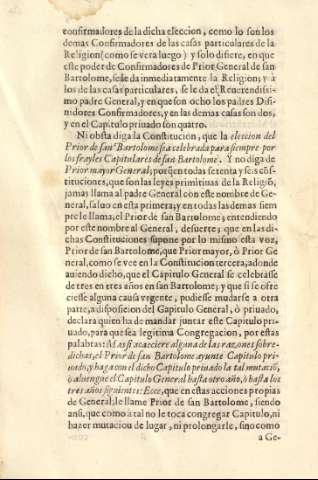 confirmadores de la dicha eleccion, como lo son los
demas Confirmadores de las casas particulares de la
Religion (como se vera luego) y solo difiere, en que
este poder de Confirmadores de Prior General de san
Bartolome, se le da inmediatamente la Religion; y a
los de las casas particulares, se le da el Reuerendissi-
mo padre General, y en que son ocho los padres Difi-
nidores Confirmadores, y en las demas casas son dos,
y en el Capitulo priuado son quatro.
Ni obsta diga la Constitucion, que la eleccion del
Prior de san Bartolome sea celebrada para siempre por
los frayles Capitulares de san Bartolome. Y no diga de
Prior mayor General; porq̃ en todas setenta y seis cõs-
tituciones, que son las leyes primitiuas de la Religiõ,
jamas llama al padre General con este nombre de Ge-
neral, saluo en esta primera; y en todas las demas siem
pre le llama, el Prior de san Bartolome; entendiendo
por este nombre al General, de suerte; que en las di-
chas Constituciones supone por lo mismo esta voz,
Prior de san Bartolome, que Prior mayor, ò Prior Ge
neral, como se vee en la Constitucion tercera, adonde
auiendo dicho, que el Capitulo General se celebrasse
de tres en tres años en san Bartolome; y que si se ofre
ciesse alguna causa vrgente, pudiesse mudarse a otra
parte, a disposicion del Capitulo General, ò priuado,
declara quien ha de mandar juntar este Capitulo pri-
uado, para que sea legitima Congregacion, por estas
palabras: Mas si acaeciere alguna de las razones sobre-
dichas, el Prior de san Bartolome ayunte Capitulo pri-
uado, y haga con el dicho Capitulo priuado la tal mutaciõ,
ò aluengue el Capitulo General hasta otro año, ò hasta los
tres años siguientes: Ecce, que en estas acciones propias
de General, le llame Prior de san Bartolome, siendo
ansi, que como a tal no le toca congregar Capitulo, ni
hazer mutacion de lugar, ni prolongarle, sino como
a Ge-